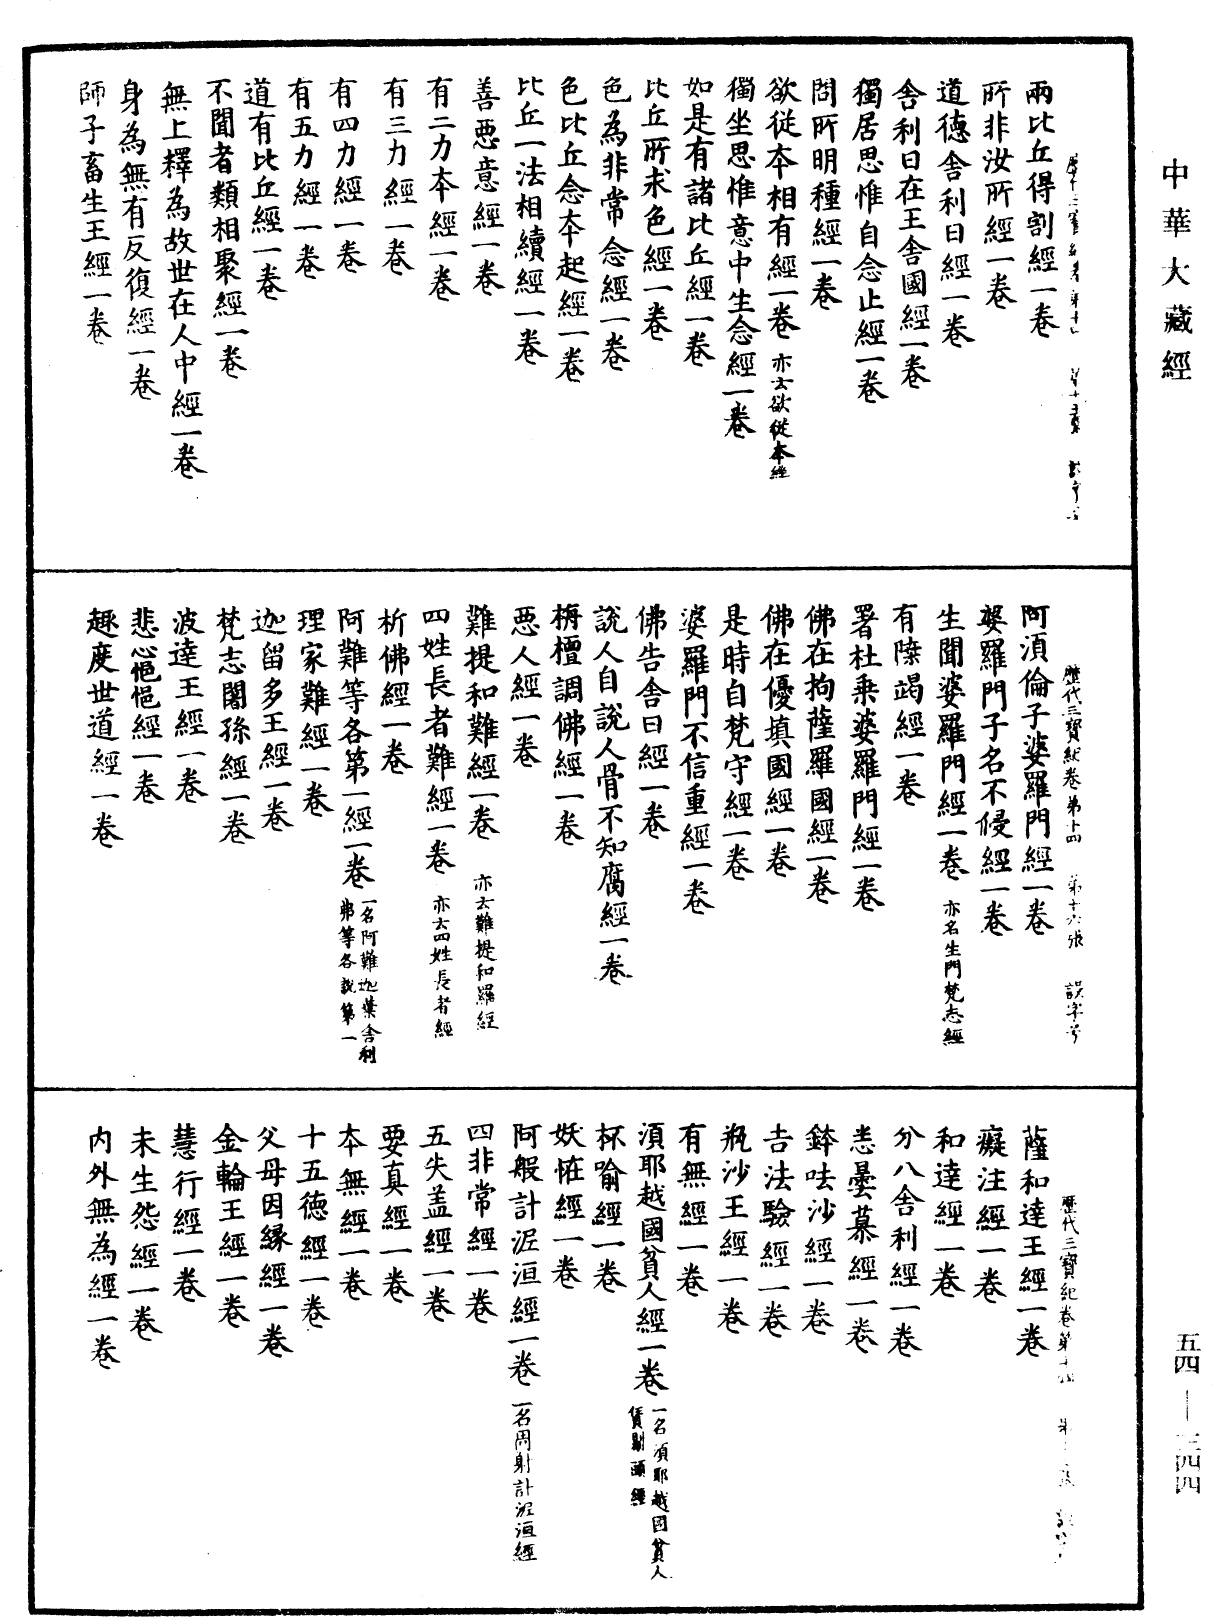 中華大藏經
兩比丘得割經一卷
所非汝所經一卷
道德舍利日經一卷
舍利日在王舍國經一卷
獨居思惟自念止經一卷
問所明種經一卷
欲從本相有經一卷 亦云欲從本經
獨坐思惟意中生念經一卷
如是有諸比丘經一卷
比丘所求色經一卷
色為非常念經一卷
色比丘念本起經一卷
比丘一法相續經一卷
善惡意經一卷
有二力本經一卷
有三力經一卷
有四力經一卷
有五力經一卷
道有比丘經一卷
不聞者類相聚經一卷
無上釋為故世在人中經一卷
身為無有反復經一卷
師子畜生王經一卷
歷代三寶紀卷第十四 第十六張 誤字号
阿須倫子婆羅門經一卷
婆羅門子名不侵經一卷
生聞婆羅門經一卷 亦名生門梵志經
有𨻶竭經一卷
署杜乘婆羅門經一卷
佛在拘薩羅國經一卷
佛在優填國經一卷
是時自梵守經一卷
婆羅門不信重經一卷
佛告舍日經一卷
說人自說人骨不知腐經一卷
栴檀調佛經一卷
惡人經一卷
難提和難經一卷 亦云難提和羅經
四姓長者難經一卷 亦云四姓長者經
析佛經一卷
阿難等各第一經一卷 一名阿難迦葉舍利弗等各說第一
理家難經一卷
迦留多王經一卷
梵志闍孫經一卷
波達王經一卷
悲心悒悒經一卷
趣度世道經一卷
歷代三寶紀卷第十四
薩和達王經一卷
癡注經一卷
和達經一卷
分八舍利經一卷
恙曇慕經一卷
鉢呿沙經一卷
吉法驗經一卷
瓶沙王經一卷
有無經一卷
須耶越國貧人經一卷 一名須耶越國貧人賃剔頭經
杯喻經一卷
妖恠經一卷
阿般計泥洹經一卷 一名周射計泥洹經
四非常經一卷
五失盖經一卷
要真經一卷
本無經一卷
十五德經一卷
父母因縁經一卷
金輪王經一卷
慧行經一卷
未生怨經一卷
内外無為經一卷
五四—三四四